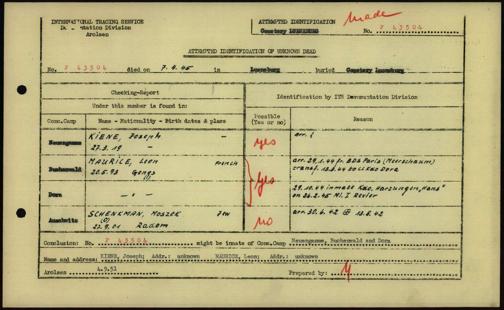 INTERNATIONAL TRACING SERVICE
Documentation Division
Arolsen
ATTEMPTED IDENTIFICATION
made
Cemetery LUENEBURG
No. F 43504
ATTEMPTED IDENTIFICATION OF UNKNOWN DEAD
No. F 43504 died on 7.4.45 in Lueneburg buried Cemetery Lueneburg
Checking-Report
Under this number is found in:
Identification by ITS Documentation Division
Conc.Camp Name - Nationality - Birth dates & place
Possible (Yes or no)
Reason
Neuengamme KIENE, Joseph -
27.3.19 -
yes
arr. (
Buchenwald MAURICE, Leon French
22.5.93
yes
arr. 29.1.44 fr. BDS Paris (Meerschaum)
transf. 13.3.44 to Dora
Dora - " -
29.10.44 inmate Kdo. Harzungen, Hans"
on 26.2.45 Revier
Auschwitz SCHENKMAN, Moszek Jew
27.9.01 Radom
no
arr. 30.6.42
Conclusion: No. F 43504 might be inmate of Conc.Camp Neuengamme, Buchenwald and Dora
Name and address: KIENE, Joseph; Addr.: unknown MAURICE, Leon; Addr.: unknown
Arolsen 4.9.51 Prepared by: